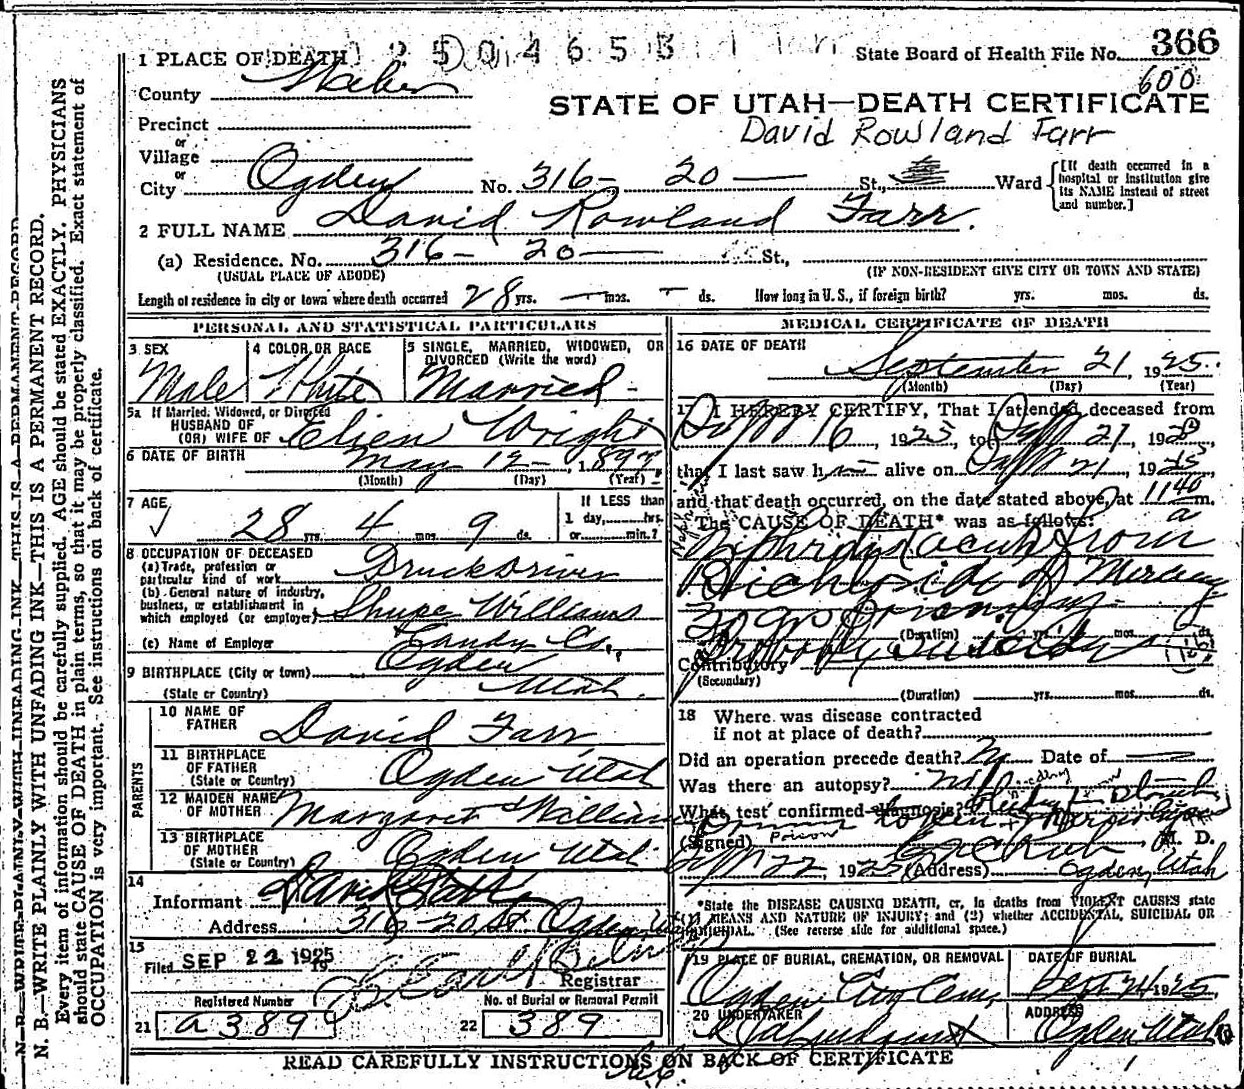 1 PLACE OF DEATH 2504655 State Board of Health File No. 366
600
County Weber
STATE OF UTAH—DEATH CERTIFICATE
Precinct
David Rowland Farr
or
Village
or
City Ogden No. 316- 20 — St., Ward [If death occurred in a hospital or institution give its NAME instead of street and number.]
2 FULL NAME David Rowland Farr.
(a) Residence. No. 316- 20 — St.,
(USUAL PLACE OF ABODE) (IF NON-RESIDENT GIVE CITY OR TOWN AND STATE)
Length of residence in city or town where death occurred 28 yrs. — mos. — ds. How long in U. S., if foreign birth? yrs. mos. ds.
PERSONAL AND STATISTICAL PARTICULARS
3 SEX Male
4 COLOR OR RACE White
5 SINGLE, MARRIED, WIDOWED, OR DIVORCED (Write the word) Married -
5a If Married, Widowed, or Divorced
HUSBAND OF
(OR) WIFE OF Ellen Wright
6 DATE OF BIRTH May 12- , 1897
(Month) (Day) (Year)
7 AGE 28 yrs. 4 mos. 9 ds.
If LESS than
1 day, hrs.
or min.?
8 OCCUPATION OF DECEASED
(a) Trade, profession or
particular kind of work Truck Driver
(b) General nature of industry,
business, or establishment in
which employed (or employer) Shupe Williams
(c) Name of Employer Candy Co.,
9 BIRTHPLACE (City or town) Ogden
(State or Country) Utah.
PARENTS
10 NAME OF
FATHER David Farr
11 BIRTHPLACE
OF FATHER
(State or Country) Ogden Utah
12 MAIDEN NAME
OF MOTHER Margaret Williams
13 BIRTHPLACE
OF MOTHER
(State or Country) Ogden Utah
14
Informant David Farr
Address 316-20 St Ogden Utah
15
Filed SEP 22 1925
Registrar
Registered Number No. of Burial or Removal Permit
21 a3899 22 389
MEDICAL CERTIFICATE OF DEATH
16 DATE OF DEATH
September 21, 1925.
(Month) (Day) (Year)
17 I HEREBY CERTIFY, That I attended deceased from
Sept 16, 1925, to Sept 21, 192
that I last saw h alive on Sept 21, 1925
and that death occurred, on the date stated above, at 1140 a m.
The CAUSE OF DEATH* was as follows:
Nephritis (acute) from
Bichloride of Mercury
Poisoning-
(Duration) yrs. mos. ds.
Probably Suicide
Contributory
(Secondary)
(Duration) yrs. mos. ds.
18 Where was disease contracted
if not at place of death?
Did an operation precede death? No Date of —
Was there an autopsy? No
What test confirmed diagnosis?
Poison
(Signed) , M. D.
Sept 22, 1925 (Address) Ogden, Utah
*State the DISEASE CAUSING DEATH, or, in deaths from VIOLENT CAUSES state
(1) MEANS AND NATURE OF INJURY; and (2) whether ACCIDENTAL, SUICIDAL OR
HOMICIDAL. (See reverse side for additional space.)
19 PLACE OF BURIAL, CREMATION, OR REMOVAL DATE OF BURIAL
Ogden City Cem, Sept 24, 1925,
20 UNDERTAKER ADDRESS
Ogden Utah
READ CAREFULLY INSTRUCTIONS ON BACK OF CERTIFICATE
N. B.—WRITE PLAINLY WITH UNFADING INK—THIS IS A PERMANENT RECORD.
N. B.—WRITE PLAINLY WITH UNFADING INK—THIS IS A PERMANENT RECORD.
Every item of information should be carefully supplied. AGE should be stated EXACTLY. PHYSICIANS
should state CAUSE OF DEATH in plain terms, so that it may be properly classified. Exact statement of
OCCUPATION is very important. See instructions on back of certificate.